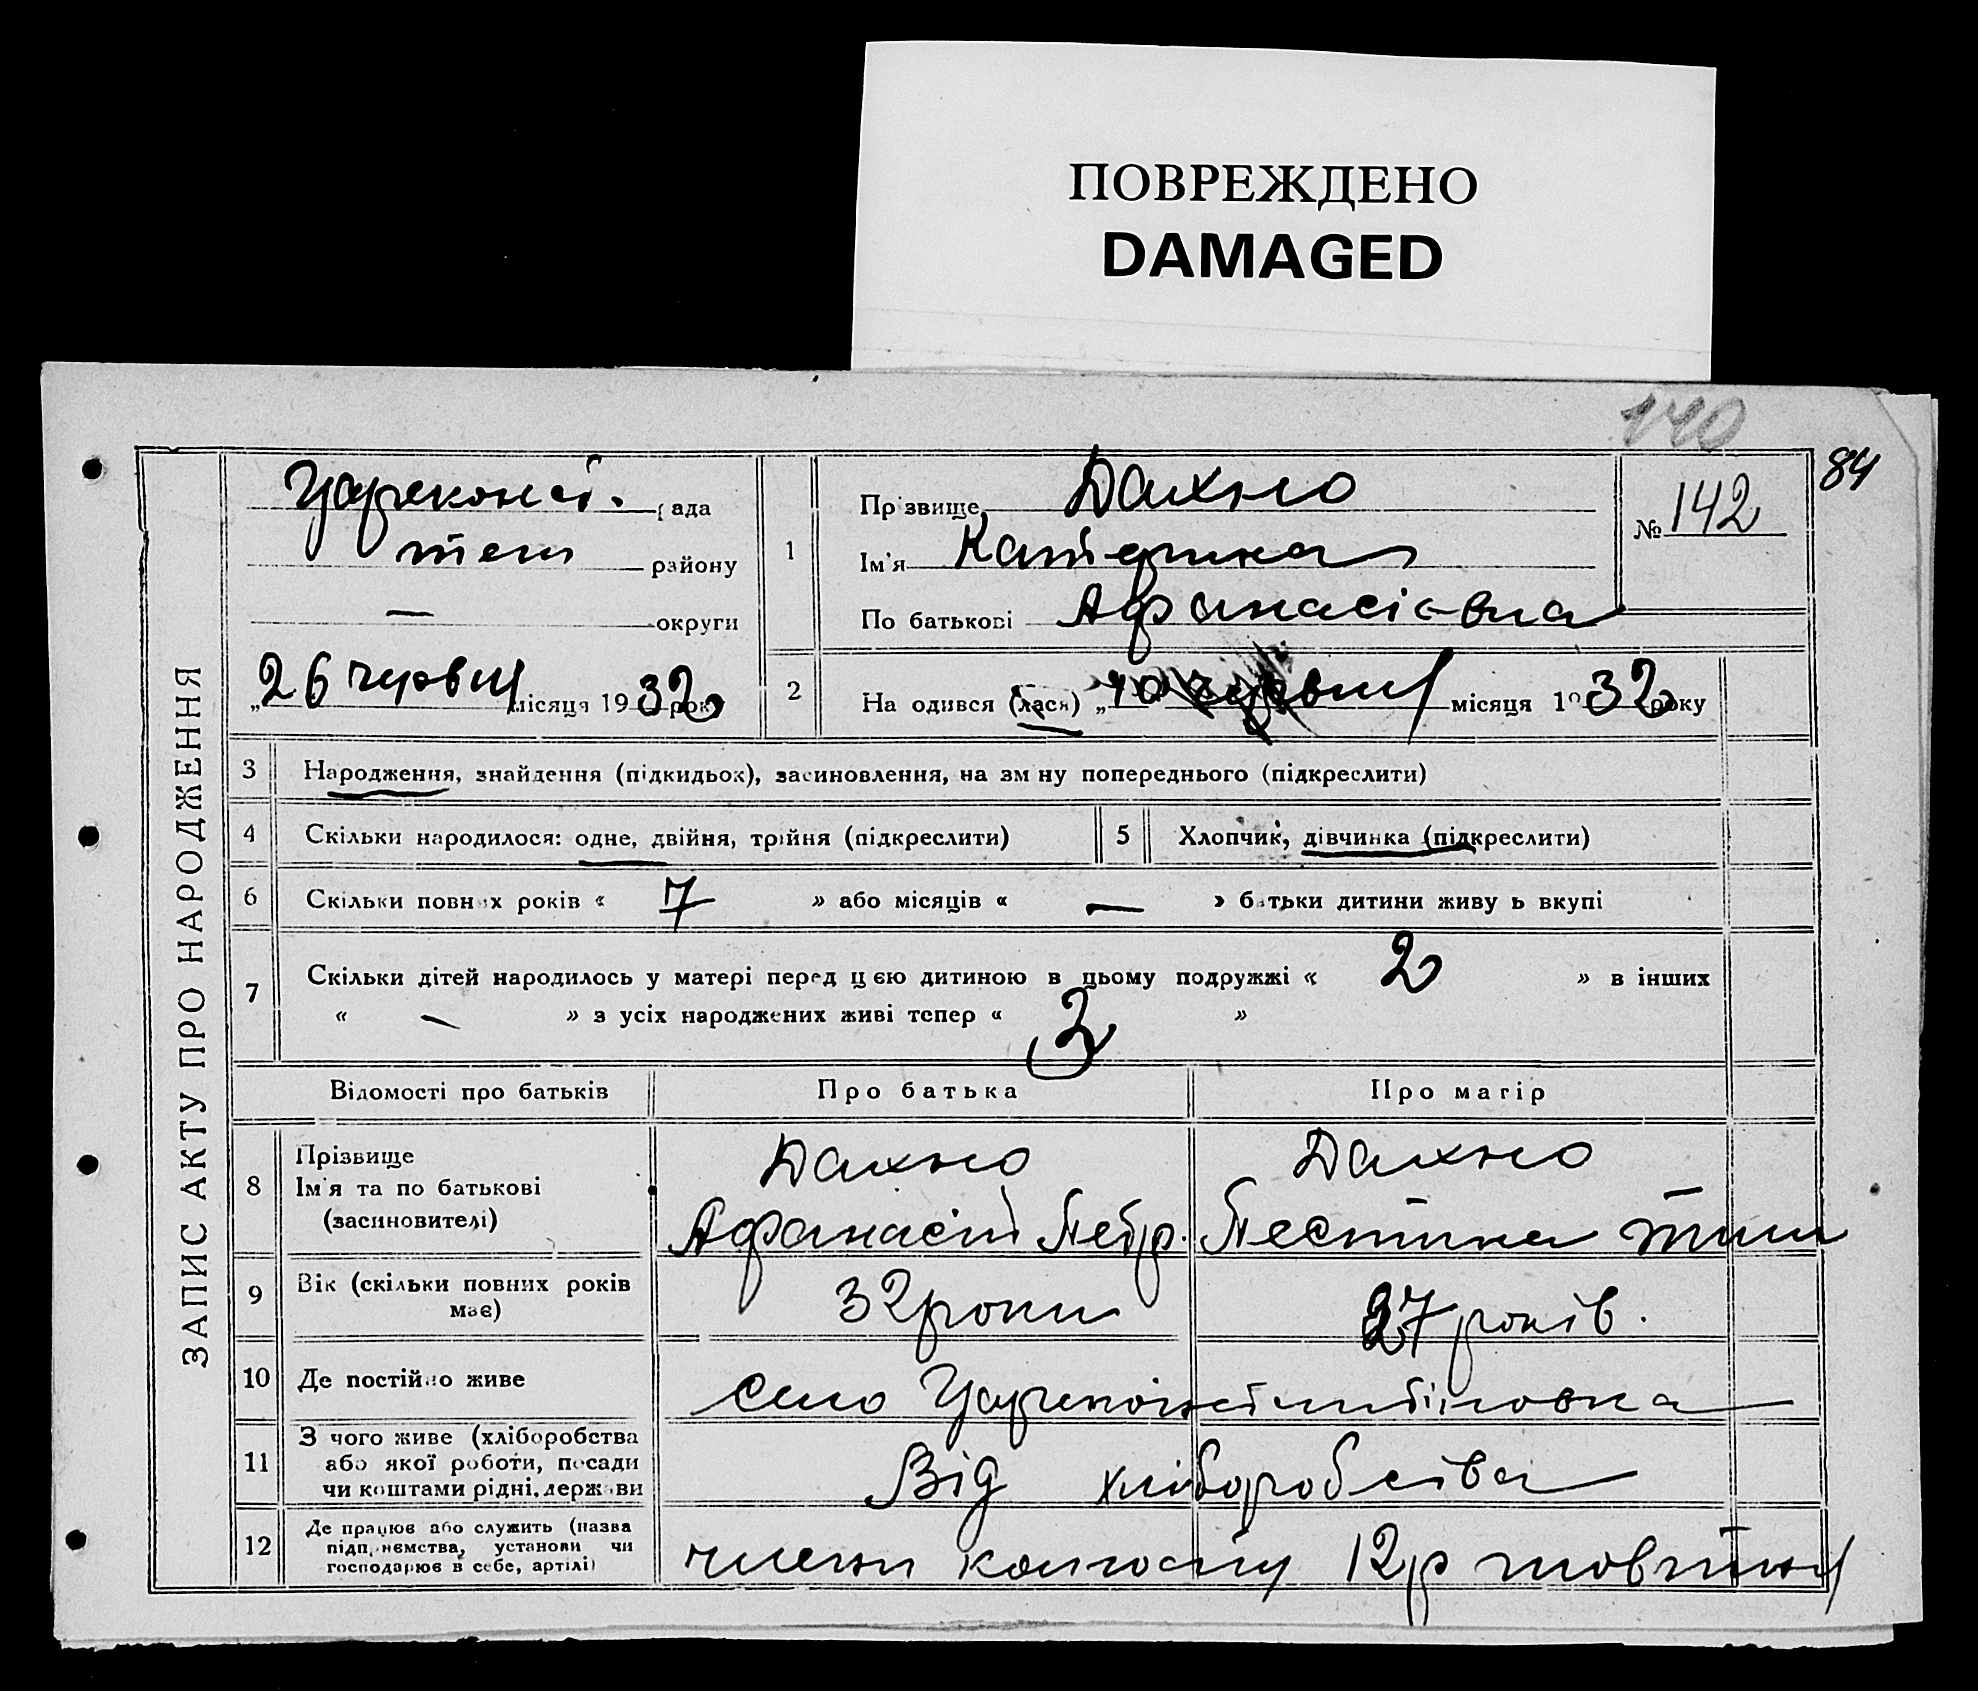 ПОВРЕЖДЕНО
DAMAGED
140
84
ЗАПИС АКТУ ПРО НАРОДЖЕННЯ
Цареконст. рада
теж району
— округи
„26 червня місяця 1932 року
1
Прізвище Дахно
Ім'я Катерина
По батькові Афанасієвна
№ 142
2 На одився (лася) „10 червня місяця 1932 року
3 Народження, знайдення (підкидьок), засиновлення, на зм ну попереднього (підкреслити)
4 Скільки народилося: одне, двійня, трійня (підкреслити)
5 Хлопчик, дівчинка (підкреслити)
6 Скільки повних років « 7 » або місяців « — » батьки дитини живу ь вкупі
7 Скільки дітей народилось у матері перед цією дитиною в цьому подружжі « 2 » в інших
« — » з усіх народжених живі тепер « 2 »
Відомості про батьків Про батька Про матір
8 Прізвище
Ім'я та по батькові
(засиновителі)
Дахно
Афанасій Петр.
Дахно
Пестина Тим
9 Вік (скільки повних років
має)
32 роки
27 років.
10 Де постійно живе
село Царекон��тантіновка
11 З чого живе (хліборобства
або якої роботи, посади
чи коштами рідні, держави
Від хліборобства
12 Де працює або служить (назва
підприємства, установи чи
господарює в себе, артілі)
члени колгоспу 12р жовтню